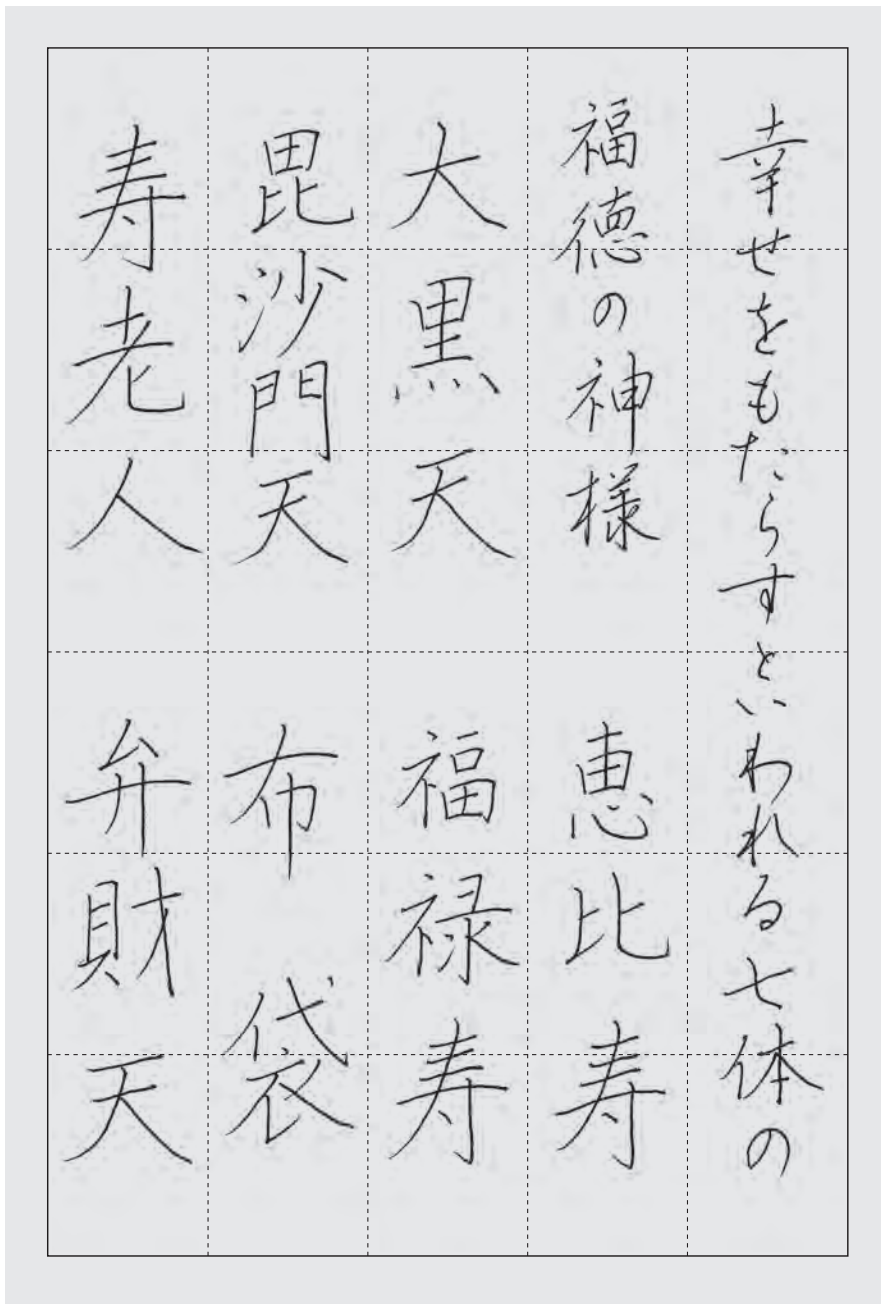 幸せをもたらすといわれる七体の
福徳の神様　恵比寿
大黒天　福禄寿
毘沙門天　布袋
寿老人　弁財天